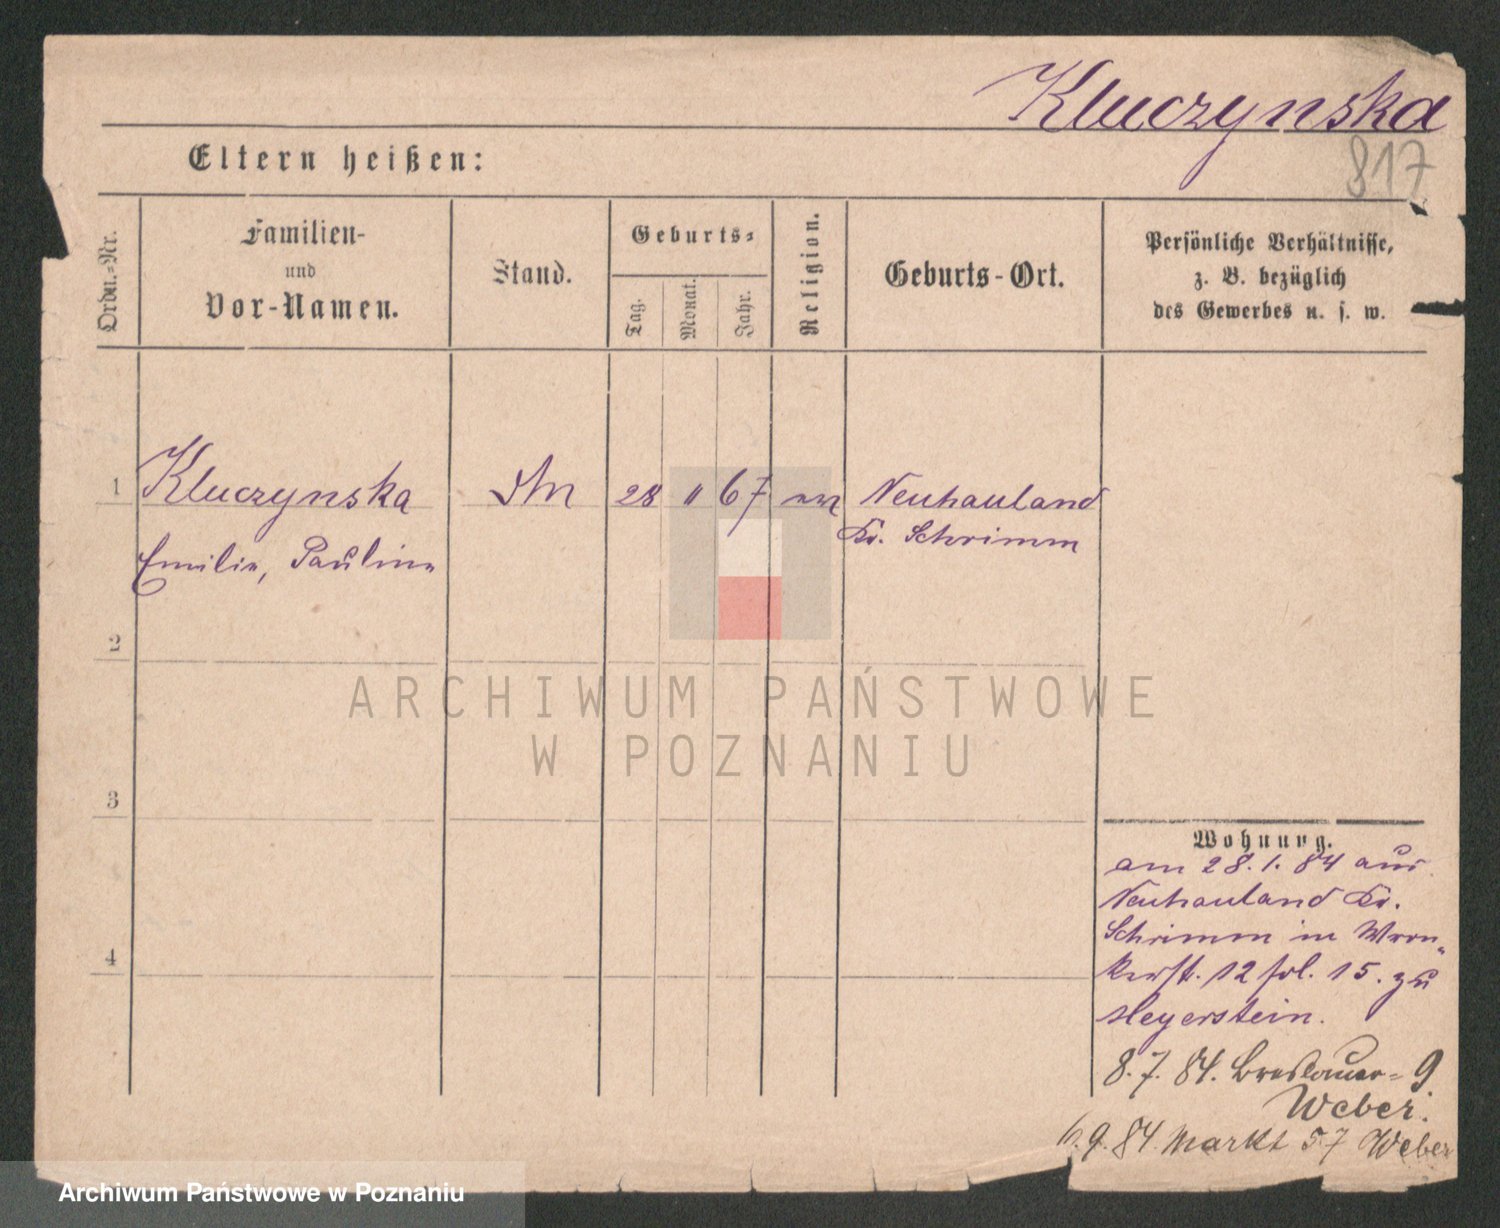 Kluczynska
817
Eltern heißen:
Ordn.-Nr.
Familien-
und
Vor-Namen.
Stand.
Geburts-
Tag.
Monat.
Jahr.
Religion.
Geburts-Ort.
Persönliche Verhältnisse,
z. B. bezüglich
des Gewerbes u. s. w.
1 Kluczynska 28 " 67 Neuhauland
Emilie, Pauline Kr. Schrimm
2
ARCHIWUM PAŃSTWOWE
W POZNANIU
3
4
Wohnung.
am 28.1.84 aus
Neuhauland Kr.
Schrimm in Wron„
kerstr. 12 fol. 15. zu
Heyerstein.
8.7.84. Breslauer- 9
Weber.
6.9.84. Markt 57 Weber
Archiwum Państwowe w Poznaniu